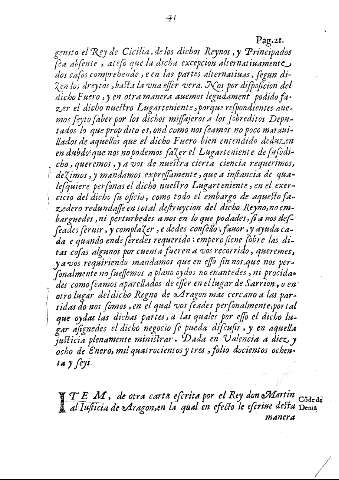 41
Pag. 21.
genito el Rey de Cicilia, de los dichos Reynos, y Principados
sea absente, ateso que la dicha excepcion alternatiuamente
dos casos comprehende, e en las partes alternatiuas, segun di-
zen los dreytos, basta la vna esser vera. Nos por disposicion del
dicho Fuero, y en otra manera auemos legudament podido fa-
zer el dicho nuestro Lugarteniente, porque respondientes aue-
mos feyto saber por los dichos missajeros a los sobreditos Depu-
tados lo que prop dito es, ond como nos seamos no poco maraui-
llados de aquellos que el dicho Fuero bien entendido deduzen
en dubdo que nos no podemos fazer el Lugarteniente de susodi-
cho, queremos, y a vos de nuestra cierta ciencia requerimos,
dezimos, y mandamos expressament, que a instancia de qua-
lesquiere personas el dicho nuestro Lugarteniente, en el exer-
cicio del dicho su oficio, como todo el embargo de aquesto fa-
zedero redundasse en total destruycion del dicho Reyno, no em-
barguedes, ni perturbedes a nos en lo que podades, si a nos des-
seades seruir, y complazer, e dedes consello, fauor, y ayuda ca-
da e quando ende seredes requerido: empero si ene sobre las di-
tas cosas algunos por cuenta fueren a vos recorrido, queremos,
y a vos requiriendo mandamos que en esso fin nos, que nos per-
sonalment no fuessemos a plano oydos no enantedes, ni procida-
des como seamos aparellados de esser en el lugar de Sarrion, o en
otro lugar del dicho Regno de Aragon mas cercano a las par-
tidas do nos somos, en el qual vos seades personalment, por tal
que oydas las dichas partes, a las quales por esso el dicho lu-
gar assignedes el dicho negocio se pueda discusir, y en aquella
justicia plenament ministrar. Dada en Valencia a diez, y
ocho de Enero, mil quatrocientos y tres, folio docientos ochen-
ta y seys.
ITEM, de otra carta escrita por el Rey don Martin
al Iusticia de Aragon, en la qual en efecto le escriue desta
manera
Côde de
Denia